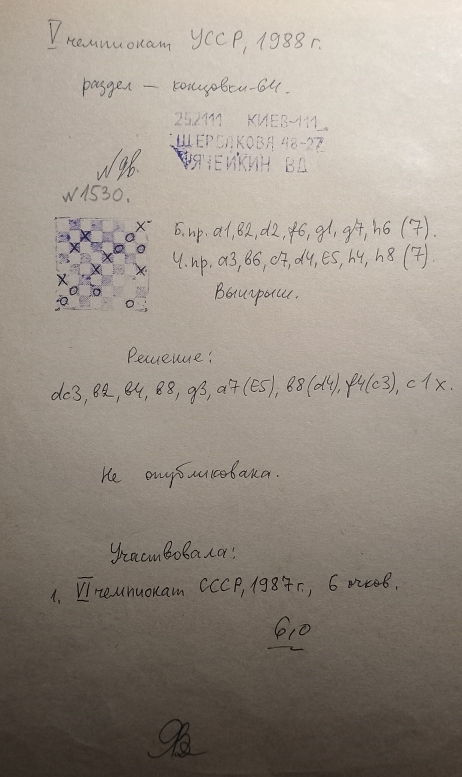 V чемпионат УССР, 1988 г.
раздел — концовки-64.
252111 КИЕВ-111
ЩЕРБАКОВА 48-27
ЯЧЕЙКИН ВД
№ 98.
№ 1530.
Б.пр. a1, в2, d2, f6, g1, g7, h6 (7).
Ч.пр. a3, в6, c7, d4, E5, h4, h8 (7).
Выигрыш.
Решение:
dc3, в2, в4, в8, g3, a7 (E5), в8 (d4), f4 (c3), c1 x.
Не опубликована.
Участвовала:
1. VI чемпионат СССР, 1987 г., 6 очков.
6,0